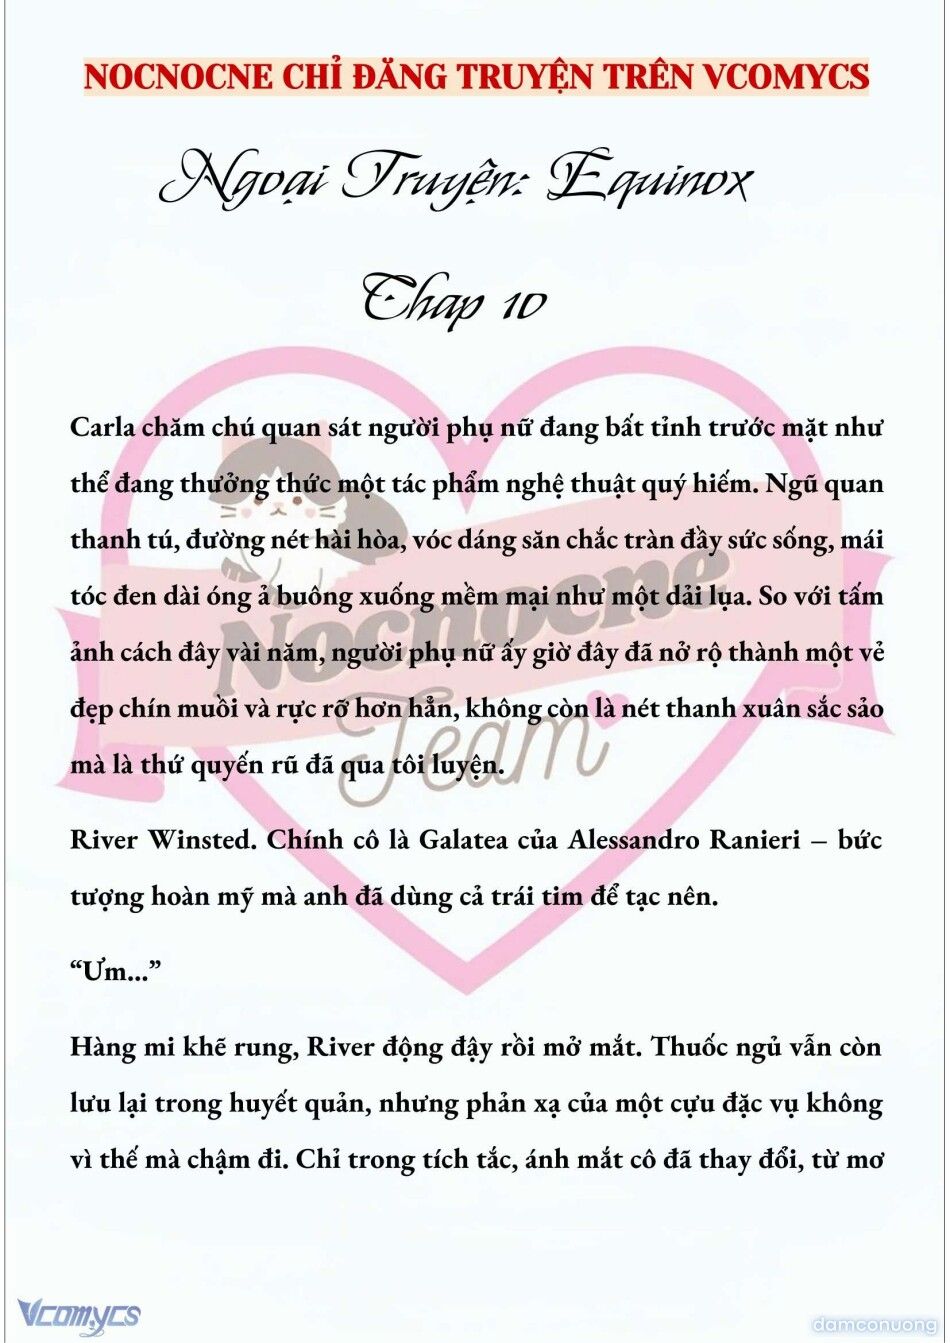 NOCNOCNE CHỈ ĐĂNG TRUYỆN TRÊN VCOMYCS
Ngoại Truyện: Equinox
Chap 10
Carla chăm chú quan sát người phụ nữ đang bất tỉnh trước mặt như
thể đang thưởng thức một tác phẩm nghệ thuật quý hiếm. Ngũ quan
thanh tú, đường nét hài hòa, vóc dáng săn chắc tràn đầy sức sống, mái
tóc đen dài óng ả buông xuống mềm mại như một dải lụa. So với tấm
ảnh cách đây vài năm, người phụ nữ ấy giờ đây đã nở rộ thành một vẻ
đẹp chín muồi và rực rỡ hơn hẳn, không còn là nét thanh xuân sắc sảo
mà là thứ quyến rũ đã qua tôi luyện.
River Winsted. Chính cô là Galatea của Alessandro Ranieri – bức
tượng hoàn mỹ mà anh đã dùng cả trái tim để tạc nên.
“Ưm...”
Hàng mi khẽ rung, River động đậy rồi mở mắt. Thuốc ngủ vẫn còn
lưu lại trong huyết quản, nhưng phản xạ của một cựu đặc vụ không
vì thế mà chậm đi. Chỉ trong tích tắc, ánh mắt cô đã thay đổi, từ mơ
Nocnocne
Team
Vcomycs
damconuong